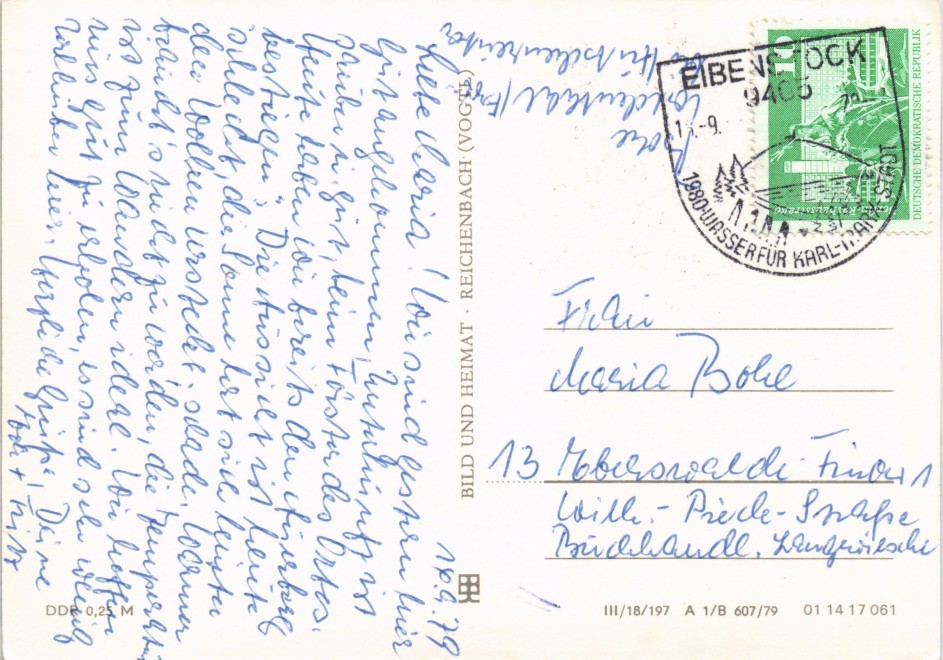 18.9.79
Liebe Maria! Wir sind gestern hier
gut angekommen, Unterkunft ist
prima u. gut, beim Förster des Ortes.
Heute haben wir bereits den
bestiegen. Die Aussicht ist heute
schlecht, die Sonne hat sich hinter
den Wolken versteckt, schade. Wärmer
braucht's nicht zu werden, die Temperatur
ist zum Wandern ideal. Wir hoffen
uns gut zu erholen, es sind sehr wenig
Urlauber hier. Herzliche Grüße! Deine
BILD UND HEIMAT · REICHENBACH (VOGTL)
DDR 0,25 M
EIBENSTOCK
9405
-9.
1980-WASSER FÜR KARL-MARX-STADT
10
DEUTSCHE DEMOKRATISCHE REPUBLIK
Frau
Maria Bohe
13 Eberswalde-Finow 1
Wilh.-Pieck-Straße
Buchhandl.
III/18/197 A 1/B 607/79 01 14 17 061